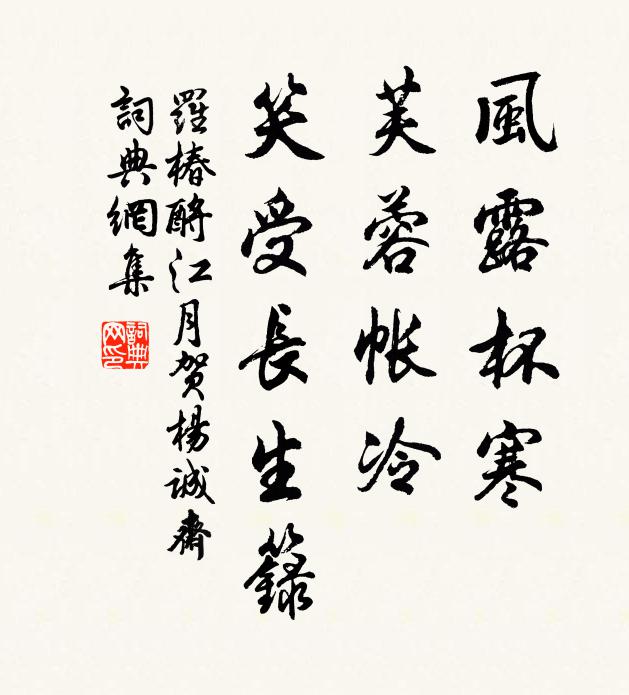 風露杯寒
芙蓉帳冷
笑受長生籙
羅椿酹江月賀楊誠齋
詞典網集
詞典網印